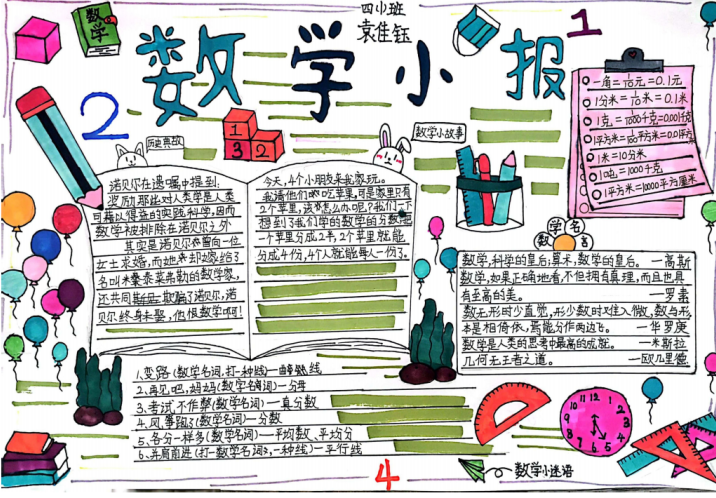 四小班
袁佳钰
数学
数学小报
1
2
1
3 2
历史典故
数学小故事
诺贝尔在遗嘱中提到:
奖励那些对人类学是人类
可藉以得益的实践科学,因而
数学被排除在诺贝尔之外
其实是诺贝尔希曾向一位
女士求婚,而她来却嫁给了
名叫米秦泰莱弗勒的数学家,
还共同欺骗了诺贝尔,诺
贝尔终身未娶,他恨数学啊!
今天,4个小朋友来我家玩。
我请他们吃苹果,可是家里只有
2个苹果,该怎么办呢?我们一下
想到了我们学的数学的分数把
一个苹果分成2半,2个苹果就能
分成4份,4个人就能每人一份了。
一角=1/10元=0.1元
1分米=1/10米=0.1米
1克=1/1000千克=0.001千克
1米=10分米
1吨=1000千克
1平方米=10000平方厘米
数学名言
数学,科学的皇后;算术,数学的皇后。—高斯
数学,如果正确地看,不但拥有真理,而且也具
有至高的美。—罗素
数无形时少直觉,形少数时难入微,数与形
本是相倚依,焉能分作两边飞。—华罗庚
数学是人类的思考中最高的成就。—米斯拉
几何无王者之道。—欧几里德
1.变路(数学名词,打一种线)—曲线
2.再见吧,妈妈(数学名词)—分母
3.考试不作弊(数学名词)—真分数
4.风筝跑了(数学名词)—分数
5.各分一样多(数学名词)—平均数、平均分
6.并肩前进(打一数学名词,一种线)—平行线
4
数学小谜语